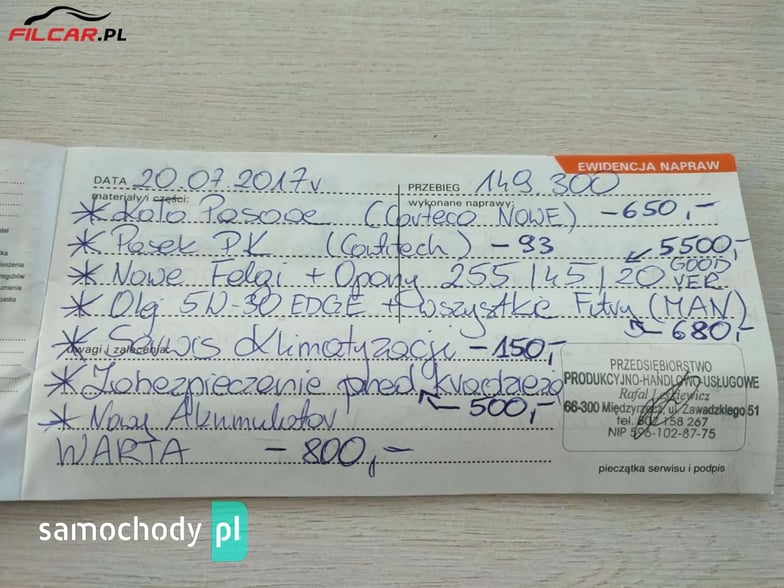 FILCAR.PL
EWIDENCJA NAPRAW
DATA 20.07.2017r PRZEBIEG 149 300
materiały i części: wykonane naprawy:
* Koło Pasowe (Corteco NOWE) -650,-
* Pasek PK (Contitech) - 93 5500,-
* Nowe Felgi + Opony 255/45/20 GOOD YER
* Olej 5W-30 EDGE + wszystkie Filtry (MAN)
680,-
uwagi i zalecenia:
* Serwis Klimatyzacji -150,-
* Zabezpieczenie przed kradzieżą
500,-
* Nowy Akumulator
WARTA - 800,-
PRZEDSIĘBIORSTWO
PRODUKCYJNO-HANDLOWO-USŁUGOWE
Rafał
66-300 Międzyrzecz, ul. Zawadzkiego 51
tel. 602 158 267
NIP 596-102-87-75
pieczątka serwisu i podpis
samochody pl